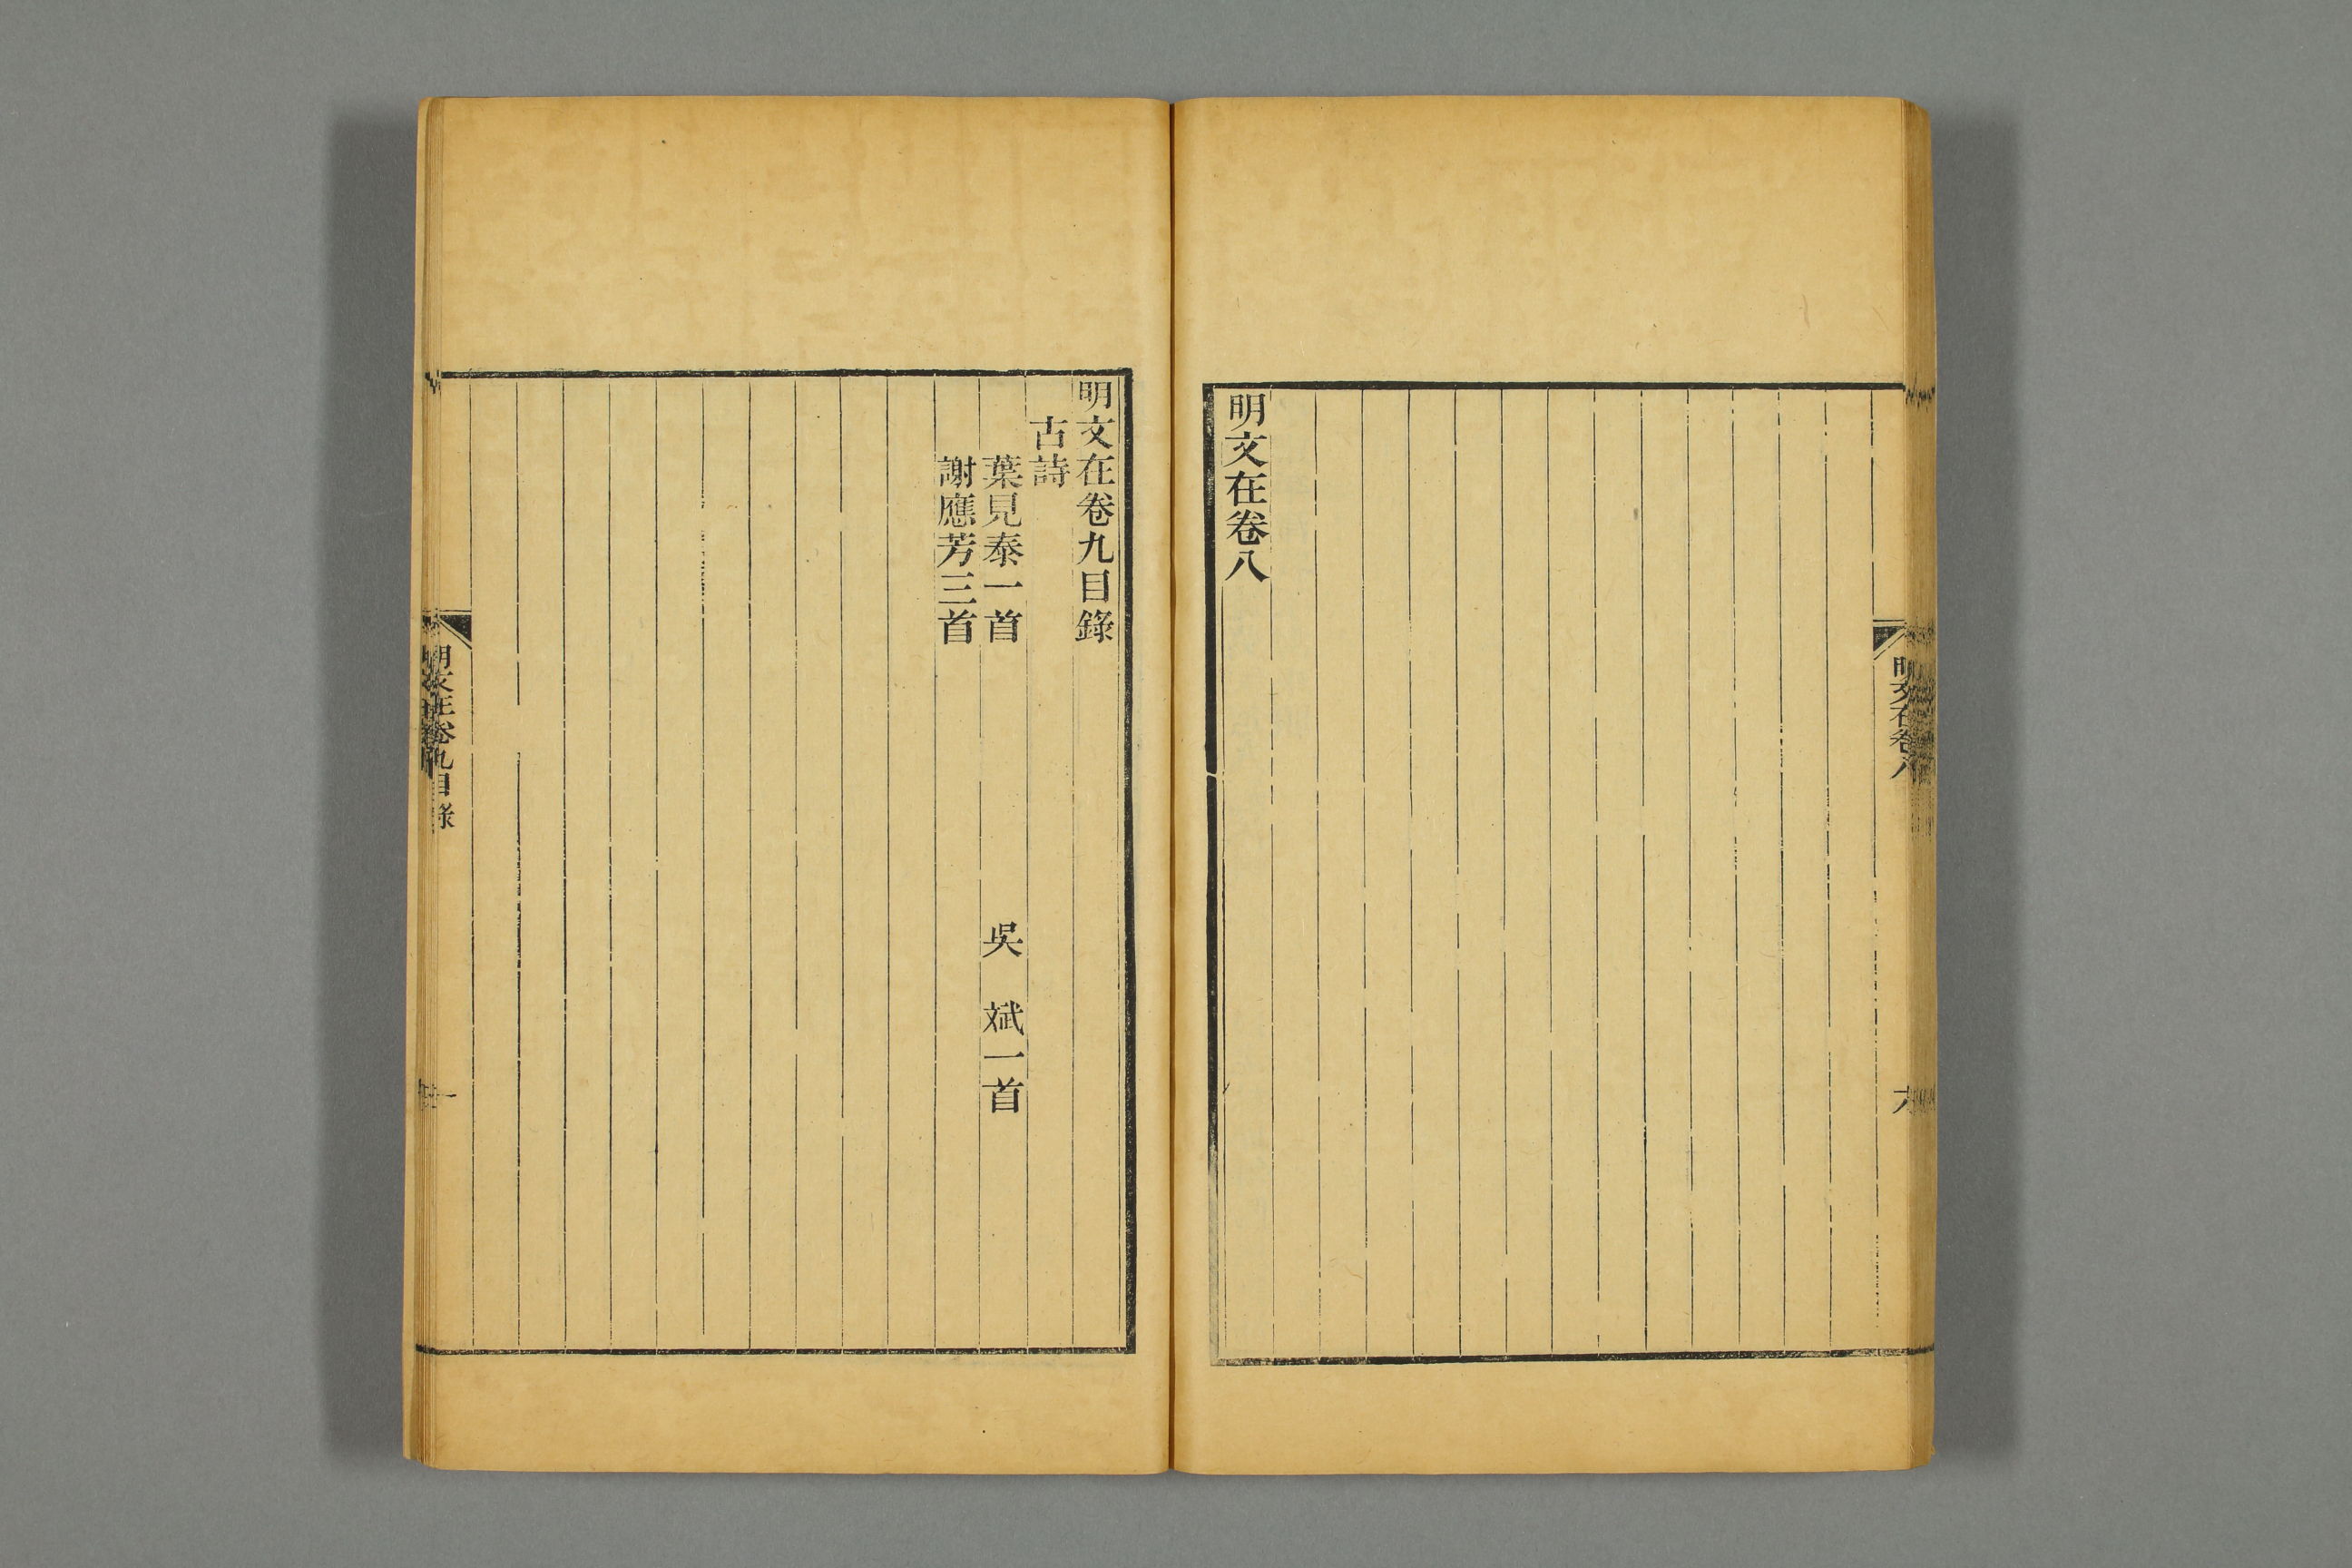 明文在卷八
六
明文在卷八
明文在卷九目錄
古詩
葉見泰一首　吳　斌一首
謝應芳三首
明文在卷九目錄
一